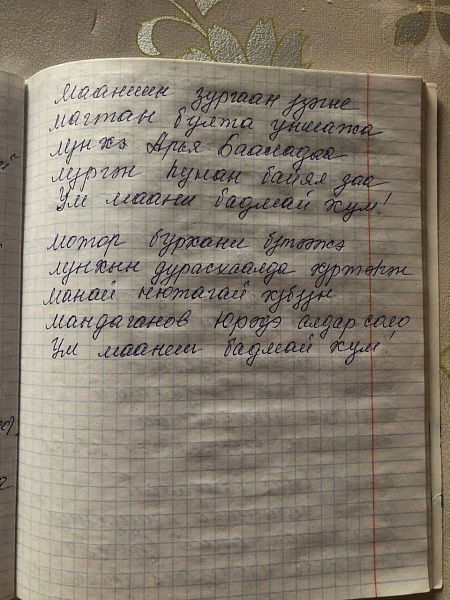 Мааниин зургаан үзэгне
магтан булта уншажа
лунхэ Арья Бааладаа
мүргэн һунан байял даа
Ум маани бадмай хум!
мотор бурхани бүтээжэ
лунхын дурасхаалда хүртэнэн
манай нютагай хүбүүн
Мандаганов Юрэдэ алдар соло
Ум маани бадмай хум!